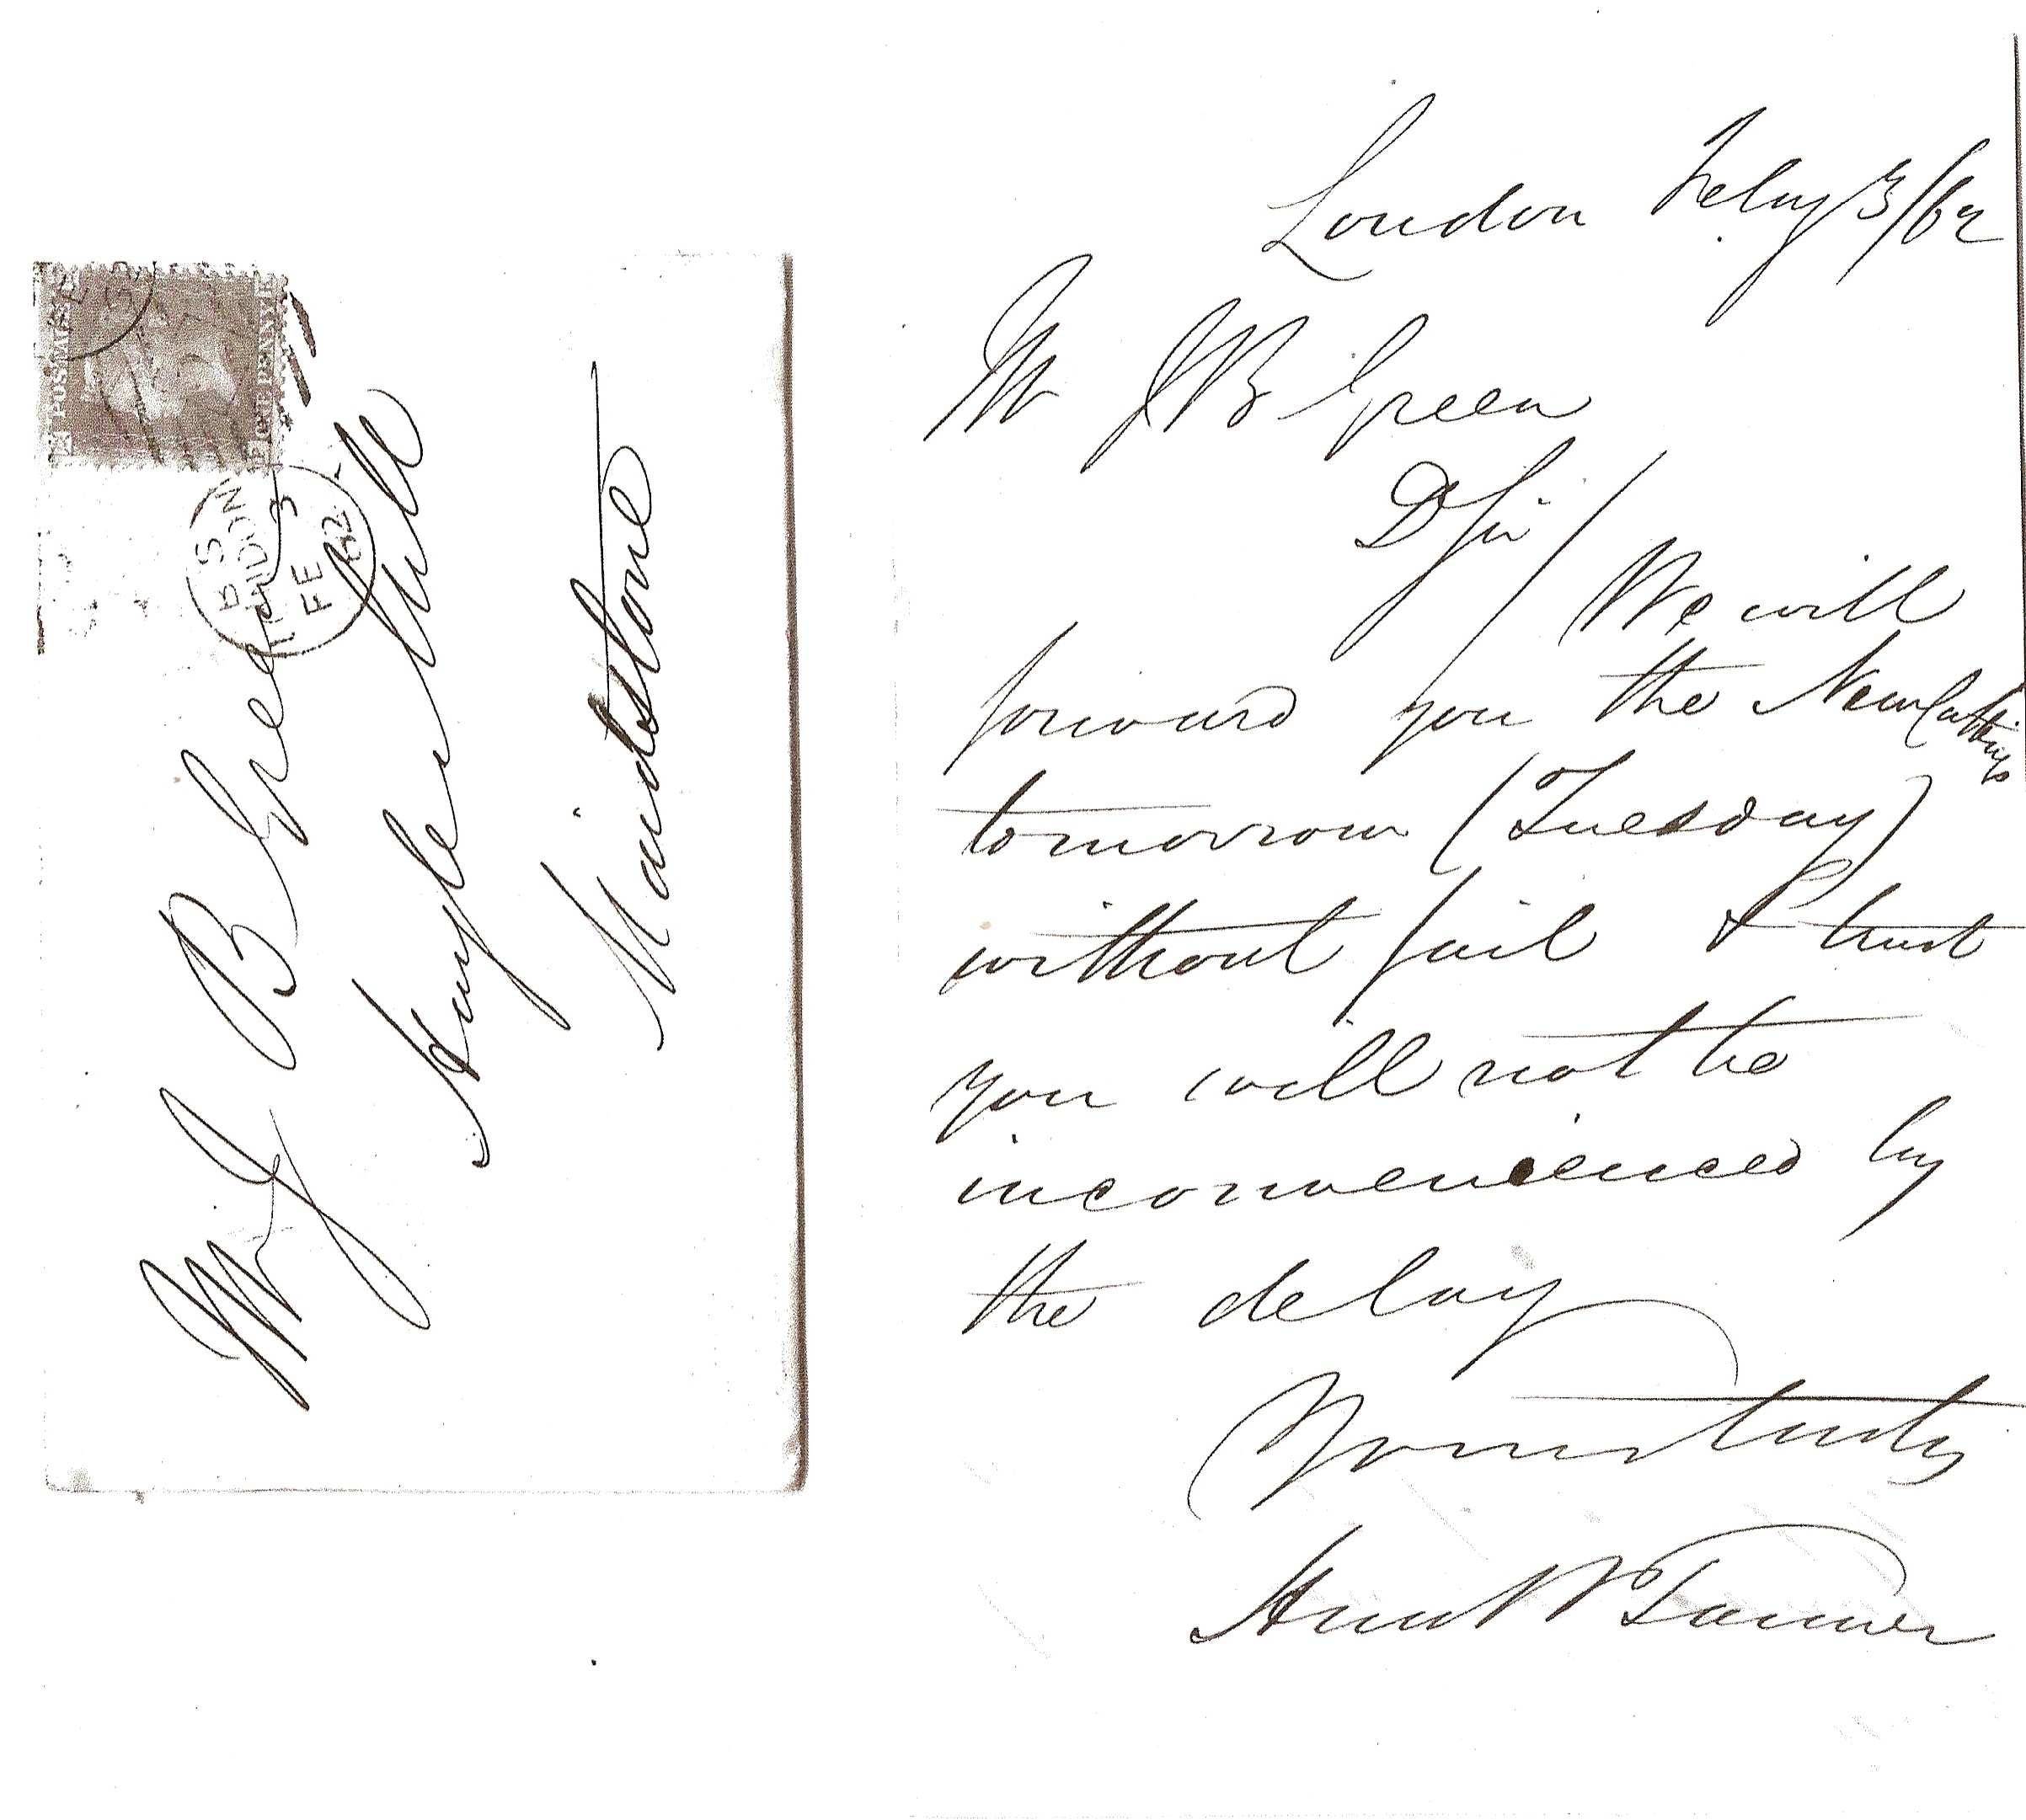 Mr J B Green
Hayle Mill
Maidstone
POSTAGE
ONE PENNY
LONDON
3
FE
62
London Feby 3/62
Mr J B Green
D Sir/
We will
forward you the New Cuttings
tomorrow (Tuesday)
without fail & trust
you will not be
inconvenienced by
the delay
Yours truly
Hunt & Tanner